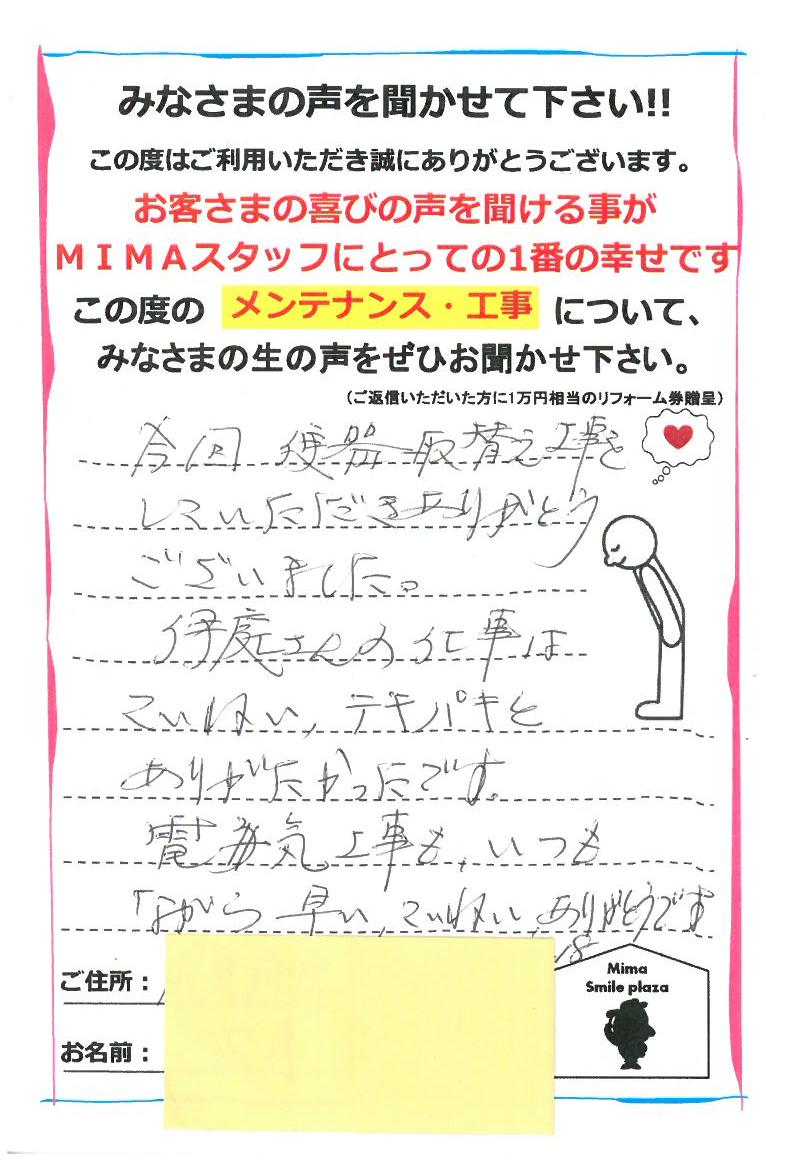 みなさまの声を聞かせて下さい!!
この度はご利用いただき誠にありがとうございます。
お客さまの喜びの声を聞ける事が
MIMAスタッフにとっての1番の幸せです
この度の メンテナンス・工事 について、
みなさまの生の声をぜひお聞かせ下さい。
(ご返信いただいた方に1万円相当のリフォーム券贈呈)
今回 便器取替え工事を
していただきありがとう
ございました。
伊庭さんの仕事は
ていねい、テキパキと
ありがたかったです。
電気工事も、いつも
ながら 早い、ていねい、ありがとうです
ご住所:
Mima
Smile plaza
お名前: